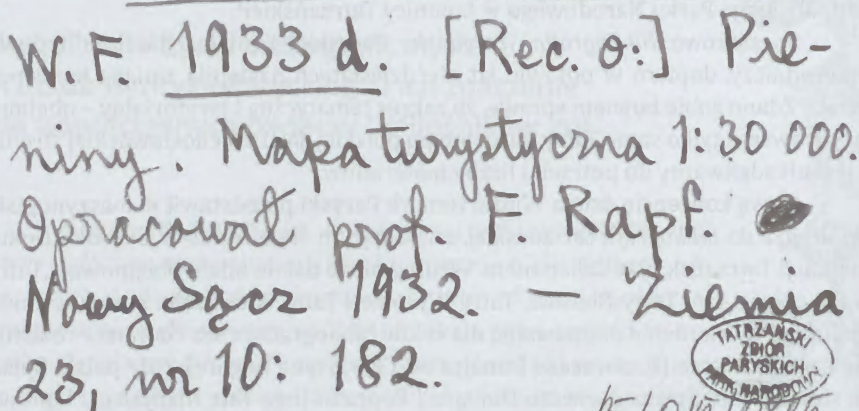 W. F. 1933 d. [Rec. o.] Pie-
niny. Mapa turystyczna 1:30 000
Opracował prof. E. Rapf.
Nowy Sącz 1932. — Ziemia
23, nr 10: 182.
TATRZAŃSKI
ZBIÓR
PARYSKICH